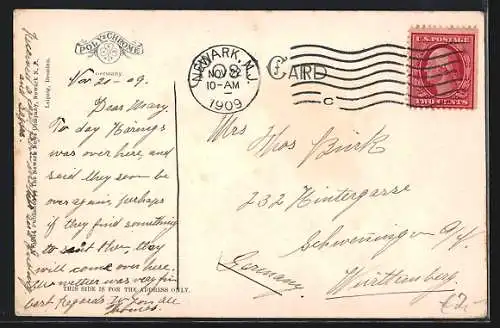 POLYCHROME
Germany.
Leipzig, Dresden.
Nov 20-09.
Dear Mary.
To day
was over here and
said they soon be
over again perhaps
if they find something
to suit them, they
will come over here.
the wether was very fin
best Regards to you all
THIS SIDE IS FOR THE ADDRESS ONLY.
NEWARK, N.J.
NOV 22
10-AM
1909
C
U.S. POSTAGE
TWO CENTS
Mrs
Thos Bürk
232 Hintergasse
Schwenningen a/N.
Germany. Württemberg
€7,-